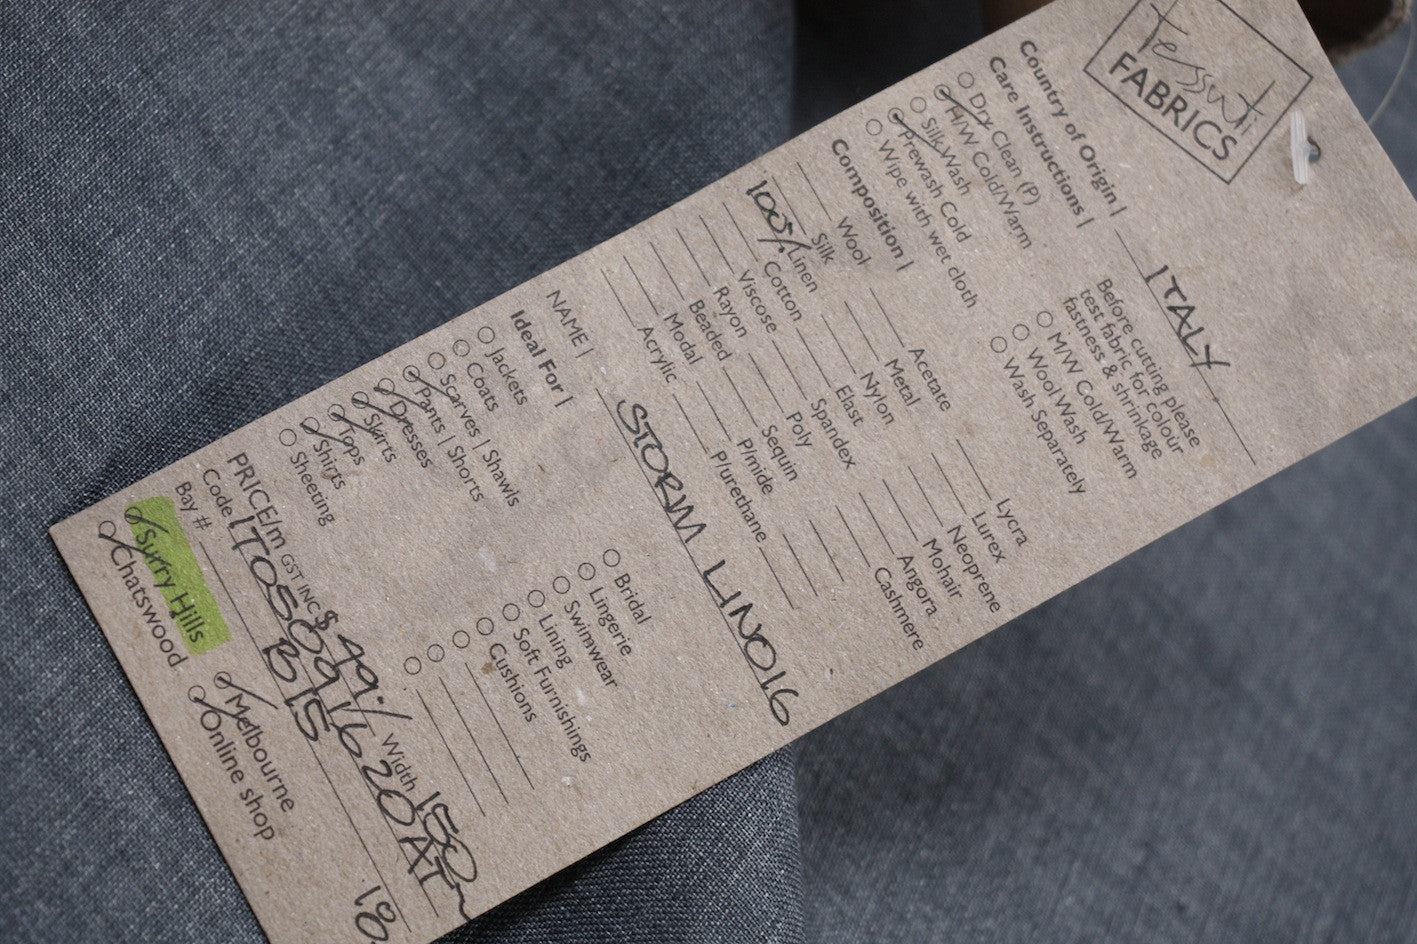 Tessuti
FABRICS
Country of Origin | ITALY
Care Instructions |
Dry Clean (P)
H/W Cold/Warm
Silk Wash
Prewash Cold
Wipe with wet cloth
Before cutting please
test fabric for colour
fastness & shrinkage
M/W Cold/Warm
Wool Wash
Wash Separately
Composition |
Wool
Silk
100% Linen
Cotton
Viscose
Rayon
Beaded
Modal
Acrylic
Acetate
Metal
Nylon
Elast
Spandex
Poly
Sequin
P/mide
P/urethane
Lycra
Lurex
Neoprene
Mohair
Angora
Cashmere
NAME | STORM LINO16
Ideal For |
Jackets
Coats
Scarves | Shawls
Pants | Shorts
Dresses
Skirts
Tops
Shirts
Sheeting
Bridal
Lingerie
Swimwear
Lining
Soft Furnishings
Cushions
PRICE/m GST INC $ 49. Width 150
Code
Bay # B15
Surry Hills
Chatswood
Melbourne
Online shop